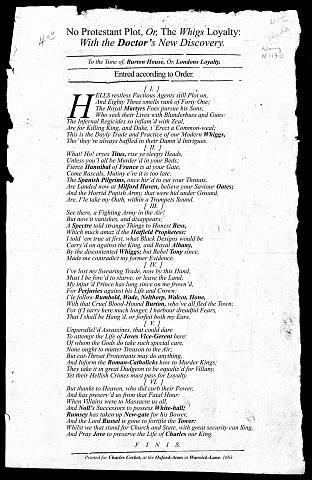 No Protestant Plot, Or, The Whigs Loyalty:
With the Doctor's New Discovery.
To the Tune of, Burton House, Or, Londons Loyalty.
Entred according to Order.
[ I. ]
HELLS restless Factious Agents still Plot on,
And Eighty Three smells rank of Forty One;
The Royal Martyrs Foes pursue his Sons,
Who seek their Lives with Blunderbuss and Guns:
The Infernal Regicides so inflam'd with Zeal,
Are for Killing King, and Duke, t' Erect a Common-weal;
This is the Dayly Trade and Practice of our Modern Whiggs,
Tho' they're always baffled in their Damn'd Intrigues.
[ II. ]
What! Ho! cryes Titus, rise ye sleepy Heads,
Unless you'l all be Murder'd in your Beds;
Fierce Hannibal of France is at your Gate,
Come Rascals, Mutiny e're it is too late:
The Spanish Pilgrims, once hir'd to cut your Throats,
Are Landed now at Milford Haven, believe your Saviour Oates;
And the Horrid Popish Army, that were hid under Ground,
Are, I'le take my Oath, within a Trumpets Sound.
[ III. ]
See there, a Fighting Army in the Air!
But now it vanishes, and disappears;
A Spectre told strange Things to Honest Bess,
Which much amaz'd the Hatfield Prophetess:
I told 'em true at first, what Black Designs would be
Carry'd on against the King, and Royal Albany,
By the discontented Whiggs; but Rebel Tony since,
Made me contradict my former Evidence.
[ IV. ]
I've lost my Swearing Trade, now by this Hand,
Must I be forc'd to starve, or leave the Land;
My injur'd Prince has long since on me frown'd,
For Perjuries against his Life and Crown:
I'le follow Rumbold, Wade, Nelthorp, Walcot, Hone,
With that Cruel Blood-Hound Burton, who've all fled the Town;
For if I tarry here much longer, I harbour dreadful Fears,
That I shall be Hang'd, or forfeit both my Ears.
[ V. ]
Unparallel'd Assassines, that could dare
To attempt the Life of Joves Vice-Gerent here:
Of whom the Gods do take such special care,
None ought to mutter Treason to the Air;
But cut-Throat Protestants may do anything,
And Inform the Roman-Catholicks how to Murder Kings;
They take it in great Dudgeon to be equaliz'd for Villany,
Yet their Hellish Crimes must pass for Loyalty.
[ VI. ]
But thanks to Heaven, who did curb their Power,
And has preserv'd us from that Fatal Hour:
When Villains were to Massacre us all,
And Noll's Successors to possess White-hall;
Rumsey has taken up New-gate for his Bower,
And the Lord Russel is gone to fortifie the Tower:
Whilst we that stand for Church and State, with great security can Sing,
And Pray Jove to preserve the Life of Charles our King.
F I N I S.
Printed for Charles Corbet, at the Oxford-Arms in Warwick-Lane. 1683